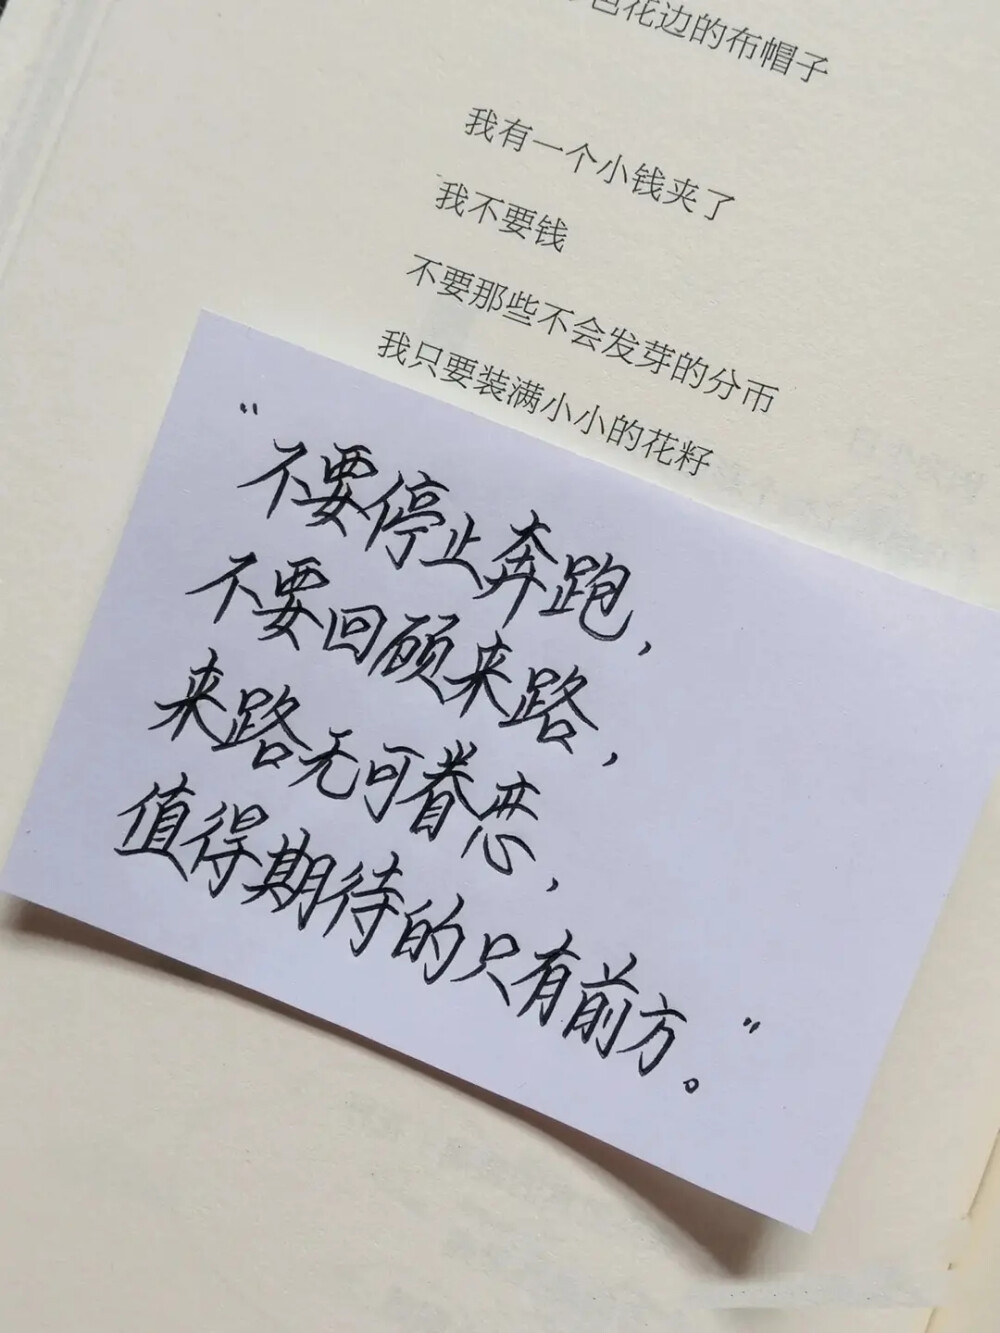 色花边的布帽子
我有一个小钱夹了
我不要钱
不要那些不会发芽的分币
我只要装满小小的花籽
"不要停止奔跑，
不要回顾来路，
来路无可眷恋，
值得期待的只有前方。"